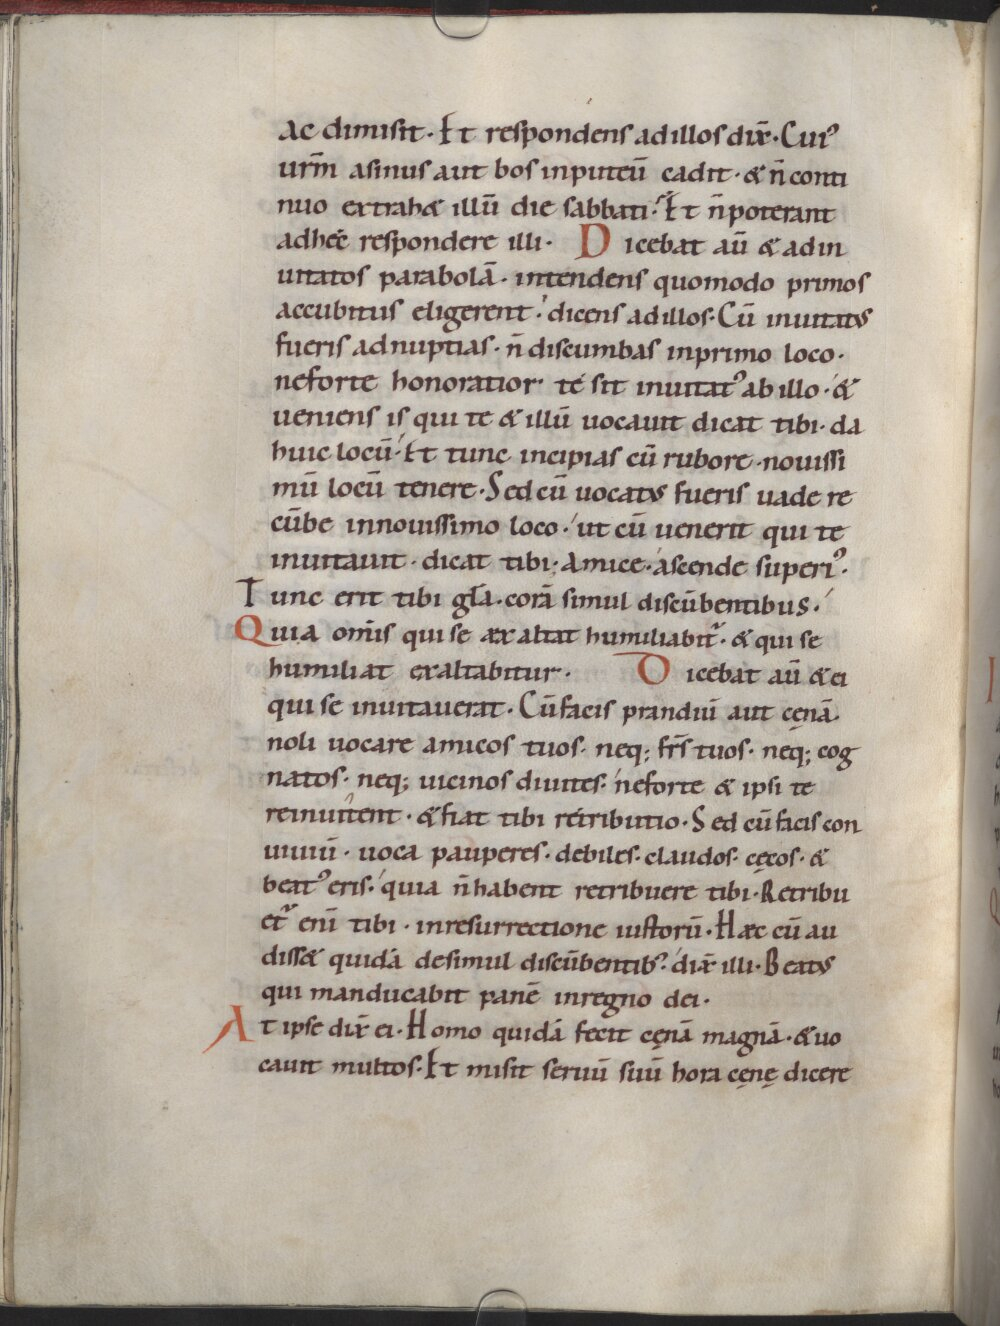 ac dimisit. Et respondens ad illos dix̄. Cui᾽
urm̄ asinus aut bos in puteū cadit. & n̄ conti
nuo extrah& illū die sabbati. Et n̄ poterant
ad hęc respondere illi. Dicebat aū & ad in
uitatos parabolā. intendens quomodo primos
accubitus eligerent. dicens ad illos. Cū inuitatus
fueris ad nuptias. n̄ discumbas in primo loco.
ne forte honoratior te sit inuitat᾽ ab illo. &
ueniens is qui te & illū uocauit dicat tibi. da
huic locū. Et tunc incipias cū rubore. nouissi
mū locū tenere. Sed cū uocatus fueris uade re
cūbe in nouissimo loco. ut cū uenerit qui te
inuitauit. dicat tibi. Amice. ascende superi᾽.
Tunc erit tibi gl̄a. corā simul discūbentibus.
Quia om̄is qui se exaltat humiliabit᾽. & qui se
humiliat exaltabitur. Dicebat aū & ei
qui se inuitauerat. Cū facis prandiū aut cęnā.
noli uocare amicos tuos. neq; fr̄s tuos. neq; cog
natos. neq; uicinos diuites. ne forte & ipsi te
reinuitent. & fiat tibi retributio. Sed cū facis con
uiuiū. uoca pauperes. debiles. claudos. cęcos. &
beat᾽ eris. quia n̄ habent retribuere tibi. Retribu
et᾽ eni̅ tibi. in resurrectione iustorū. Haec cū au
diss& quidā de simul discūbentib᾽. dix̄ illi. Beatus
qui manducabit panē in regno dei.
At ipse dix̄ ei. Homo quidā fecit cęnā magnā. & uo
cauit multos. Et misit seruū suū hora cęnę dicere